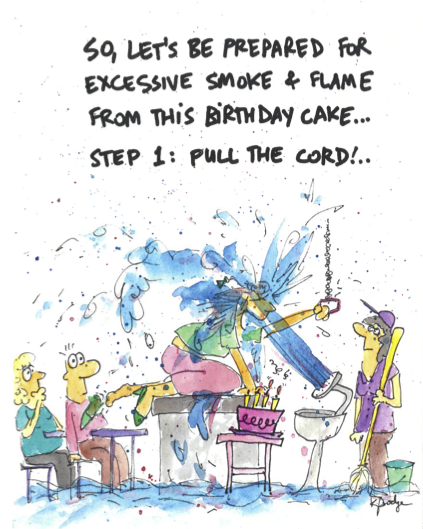 SO, LET'S BE PREPARED FOR
EXCESSIVE SMOKE & FLAME
FROM THIS BIRTHDAY CAKE...
STEP 1: PULL THE CORD!..